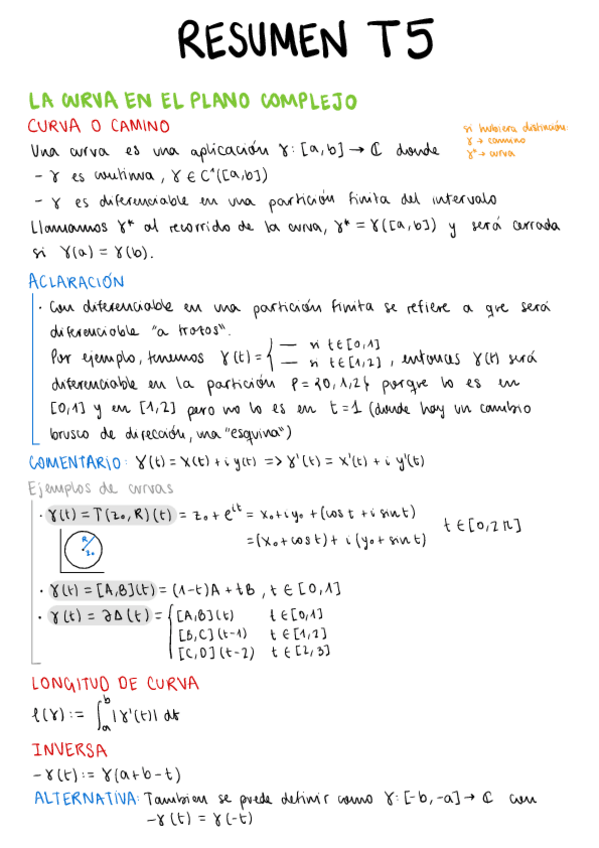 RESUMEN T5
LA CURVA EN EL PLANO COMPLEJO
CURVA O CAMINO
si hubiera distinción:
γ → camino
γ* → curva
Una curva es una aplicación γ: [a,b] → ℂ donde
- γ es continua, γ ∈ C¹([a,b])
- γ es diferenciable en una partición finita del intervalo
Llamamos γ* al recorrido de la curva, γ* = γ([a,b]) y será cerrada
si γ(a) = γ(b).
ACLARACIÓN
· Con diferenciable en una partición finita se refiere a que será
diferenciable "a trozos".
Por ejemplo, tenemos γ(t) = { — si t∈[0,1]
— si t∈[1,2] , entonces γ(t) será
diferenciable en la partición P = {0,1,2} porque lo es en
[0,1] y en [1,2] pero no lo es en t=1 (donde hay un cambio
brusco de dirección, una "esquina")
COMENTARIO: γ(t) = x(t) + i y(t) => γ'(t) = x'(t) + i y'(t)
Ejemplos de curvas
· γ(t) = T(z₀,R)(t) = z₀ + e^{it} = x₀ + iy₀ + (cos t + i sin t)
= (x₀ + cos t) + i (y₀ + sin t)
t ∈ [0,2π]
R
z₀
· γ(t) = [A,B](t) = (1-t)A + tB , t ∈ [0,1]
· γ(t) = ∂Δ(t) = { [A,B](t) t ∈ [0,1]
[B,C](t-1) t ∈ [1,2]
[C,D](t-2) t ∈ [2,3]
LONGITUD DE CURVA
ℓ(γ) := ∫_a^b |γ'(t)| dt
INVERSA
-γ(t) := γ(a+b-t)
ALTERNATIVA: Tambien se puede definir como γ: [-b,-a] → ℂ con
-γ(t) = γ(-t)